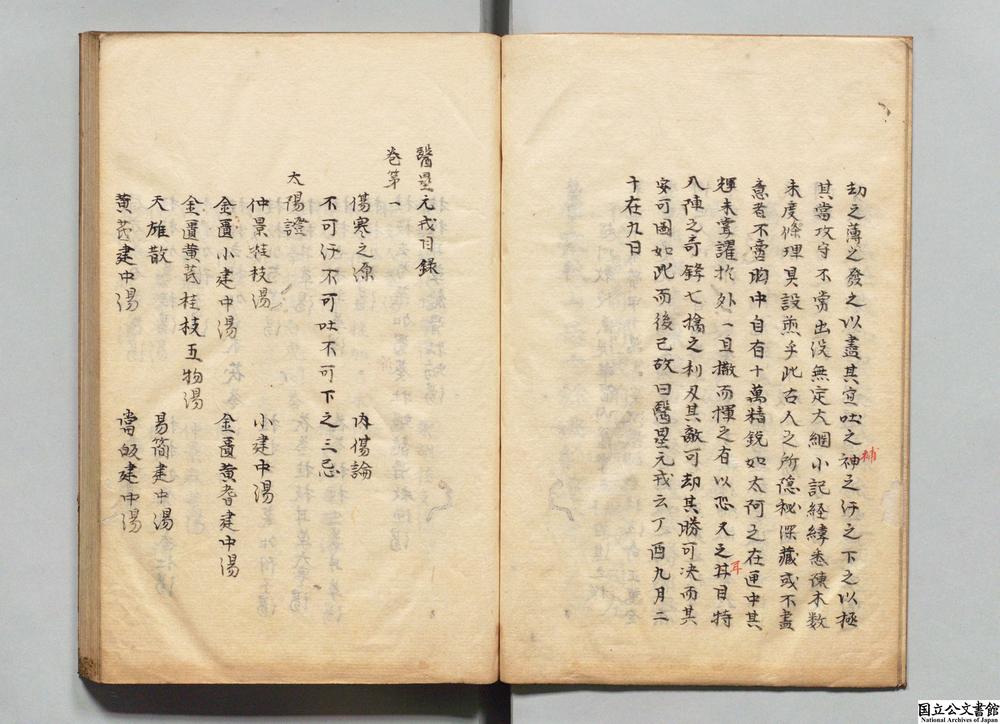 劫之薄之發之以盡其宜吐之神之汗之下之以極
補
其當攻守不常出没無定大綱小記経緯悉陳本数
末度條理具設前乎此古人之所隠秘深藏或不盡
意者不啻胸中自有十萬精鋭如太阿之在匣中其
輝未嘗躍扵外一旦撒而揮之有以恐人之目特
耳
八陣之奇鋒七擒之利刃其敵可却其勝可决而其
安可固如此而後已故曰醫壘元戎云丁酉九月二
十在九日
醫壘元戎目録
巻第一
傷寒之源 内傷論
不可汗不可吐不可下之三忌
太陽證
仲景桂枝湯 小建中湯
金匱小建中湯 金匱黄耆建中湯
金匱黄芪桂枝五物湯
天雄散 易簡建中湯
黄芪建中湯 當皈建中湯
国立公文書館
National Archives of Japan